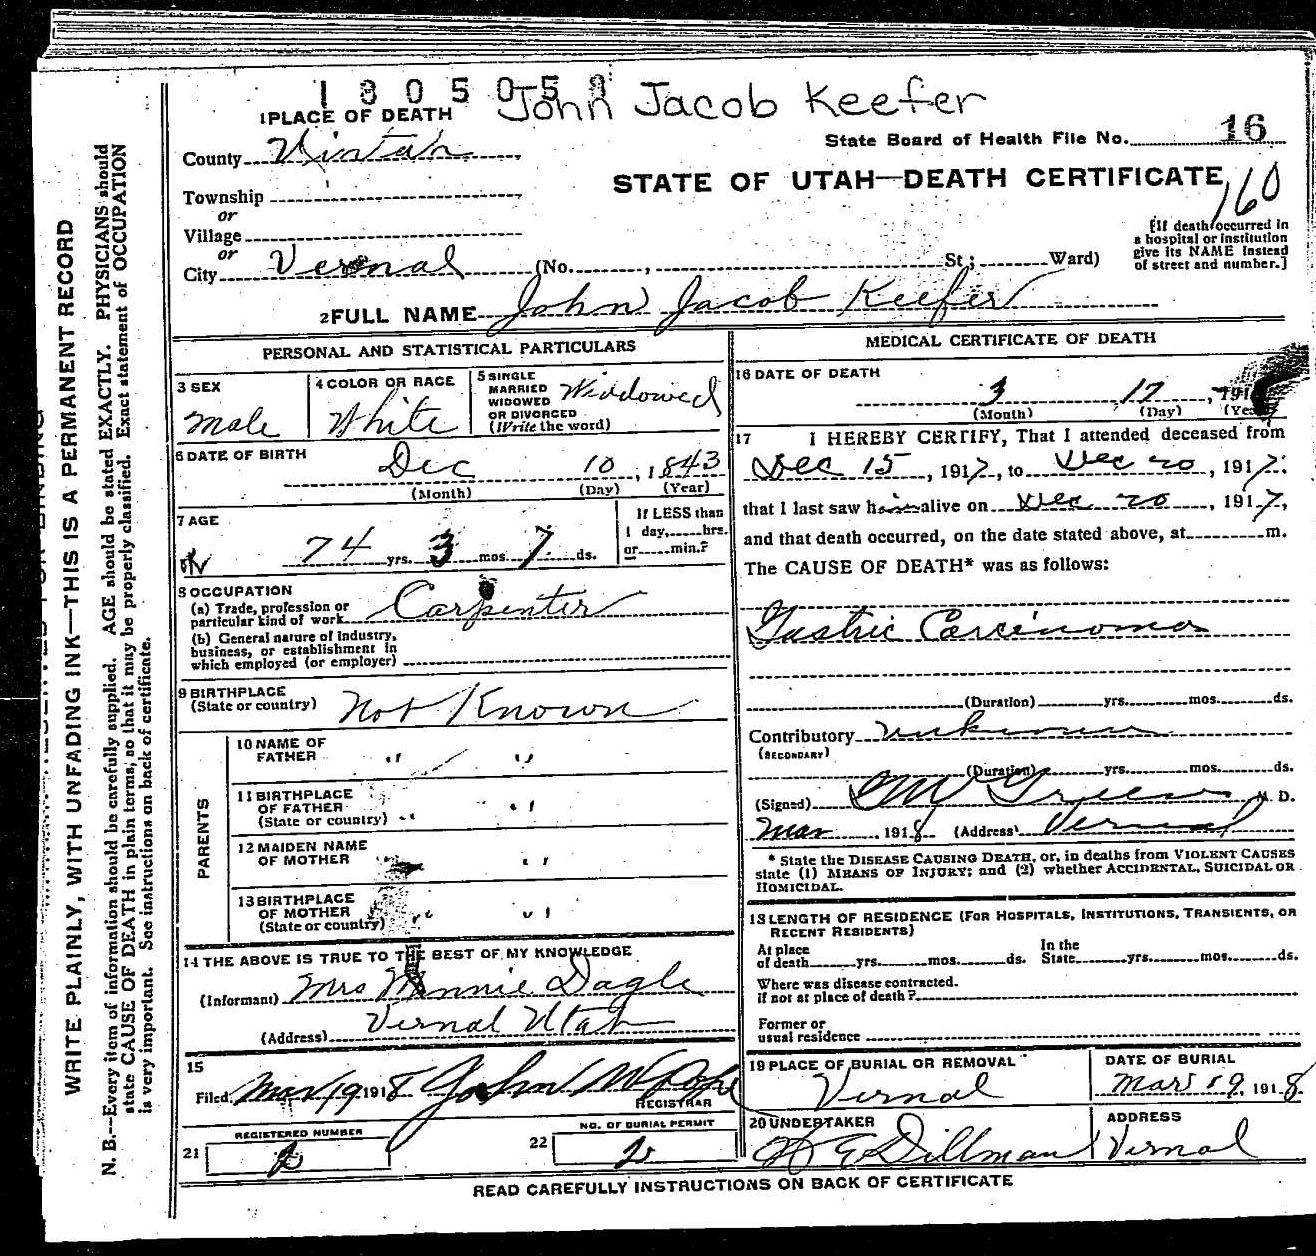 1305059
John Jacob Keefer
1 PLACE OF DEATH
State Board of Health File No. 16
County Uintah
STATE OF UTAH—DEATH CERTIFICATE
160
Township
or
Village
or
City Vernal (No. , St.; Ward)
[If death occurred in
a hospital or institution
give its NAME instead
of street and number.]
2 FULL NAME John Jacob Keefer
PERSONAL AND STATISTICAL PARTICULARS
3 SEX
Male
4 COLOR OR RACE
White
5 SINGLE
MARRIED
WIDOWED
OR DIVORCED
(Write the word)
Widdowed
6 DATE OF BIRTH
Dec 10, 1843
(Month) (Day) (Year)
7 AGE
74 yrs. 3 mos. 7 ds.
If LESS than
1 day, hrs.
or min.?
8 OCCUPATION
(a) Trade, profession or
particular kind of work Carpenter
(b) General nature of industry,
business, or establishment in
which employed (or employer)
9 BIRTHPLACE
(State or country) Not Known
PARENTS
10 NAME OF
FATHER " "
11 BIRTHPLACE
OF FATHER
(State or country) " "
12 MAIDEN NAME
OF MOTHER " "
13 BIRTHPLACE
OF MOTHER
(State or country) " "
14 THE ABOVE IS TRUE TO THE BEST OF MY KNOWLEDGE
(Informant) Mrs Minnie Dagle
(Address) Vernal Utah
15
Filed Mar 19 1918 John W Pope
REGISTRAR
21 REGISTERED NUMBER
22 NO. OF BURIAL PERMIT
MEDICAL CERTIFICATE OF DEATH
16 DATE OF DEATH
3 17, 191
(Month) (Day) (Year)
17 I HEREBY CERTIFY, That I attended deceased from
Dec 15, 1917, to Dec 20, 1917,
that I last saw him alive on Dec 20, 1917,
and that death occurred, on the date stated above, at m.
The CAUSE OF DEATH* was as follows:
Gastric Carcinoma
(Duration) yrs. mos. ds.
Contributory unknown
(SECONDARY)
(Duration) yrs. mos. ds.
(Signed) Green M. D.
Mar, 1918 (Address) Vernal
* State the DISEASE CAUSING DEATH, or, in deaths from VIOLENT CAUSES
state (1) MEANS OF INJURY; and (2) whether ACCIDENTAL, SUICIDAL OR
HOMICIDAL.
18 LENGTH OF RESIDENCE (FOR HOSPITALS, INSTITUTIONS, TRANSIENTS, OR
RECENT RESIDENTS)
At place
of death yrs. mos. ds.
In the
State yrs. mos. ds.
Where was disease contracted.
if not at place of death?
Former or
usual residence
19 PLACE OF BURIAL OR REMOVAL
Vernal
DATE OF BURIAL
Mar 19, 1918
20 UNDERTAKER
Dillman
ADDRESS
Vernal
READ CAREFULLY INSTRUCTIONS ON BACK OF CERTIFICATE
WRITE PLAINLY, WITH UNFADING INK—THIS IS A PERMANENT RECORD
N. B.—Every item of information should be carefully supplied. AGE should be stated EXACTLY. PHYSICIANS should
state CAUSE OF DEATH in plain terms, so that it may be properly classified. Exact statement of OCCUPATION
is very important. See instructions on back of certificate.